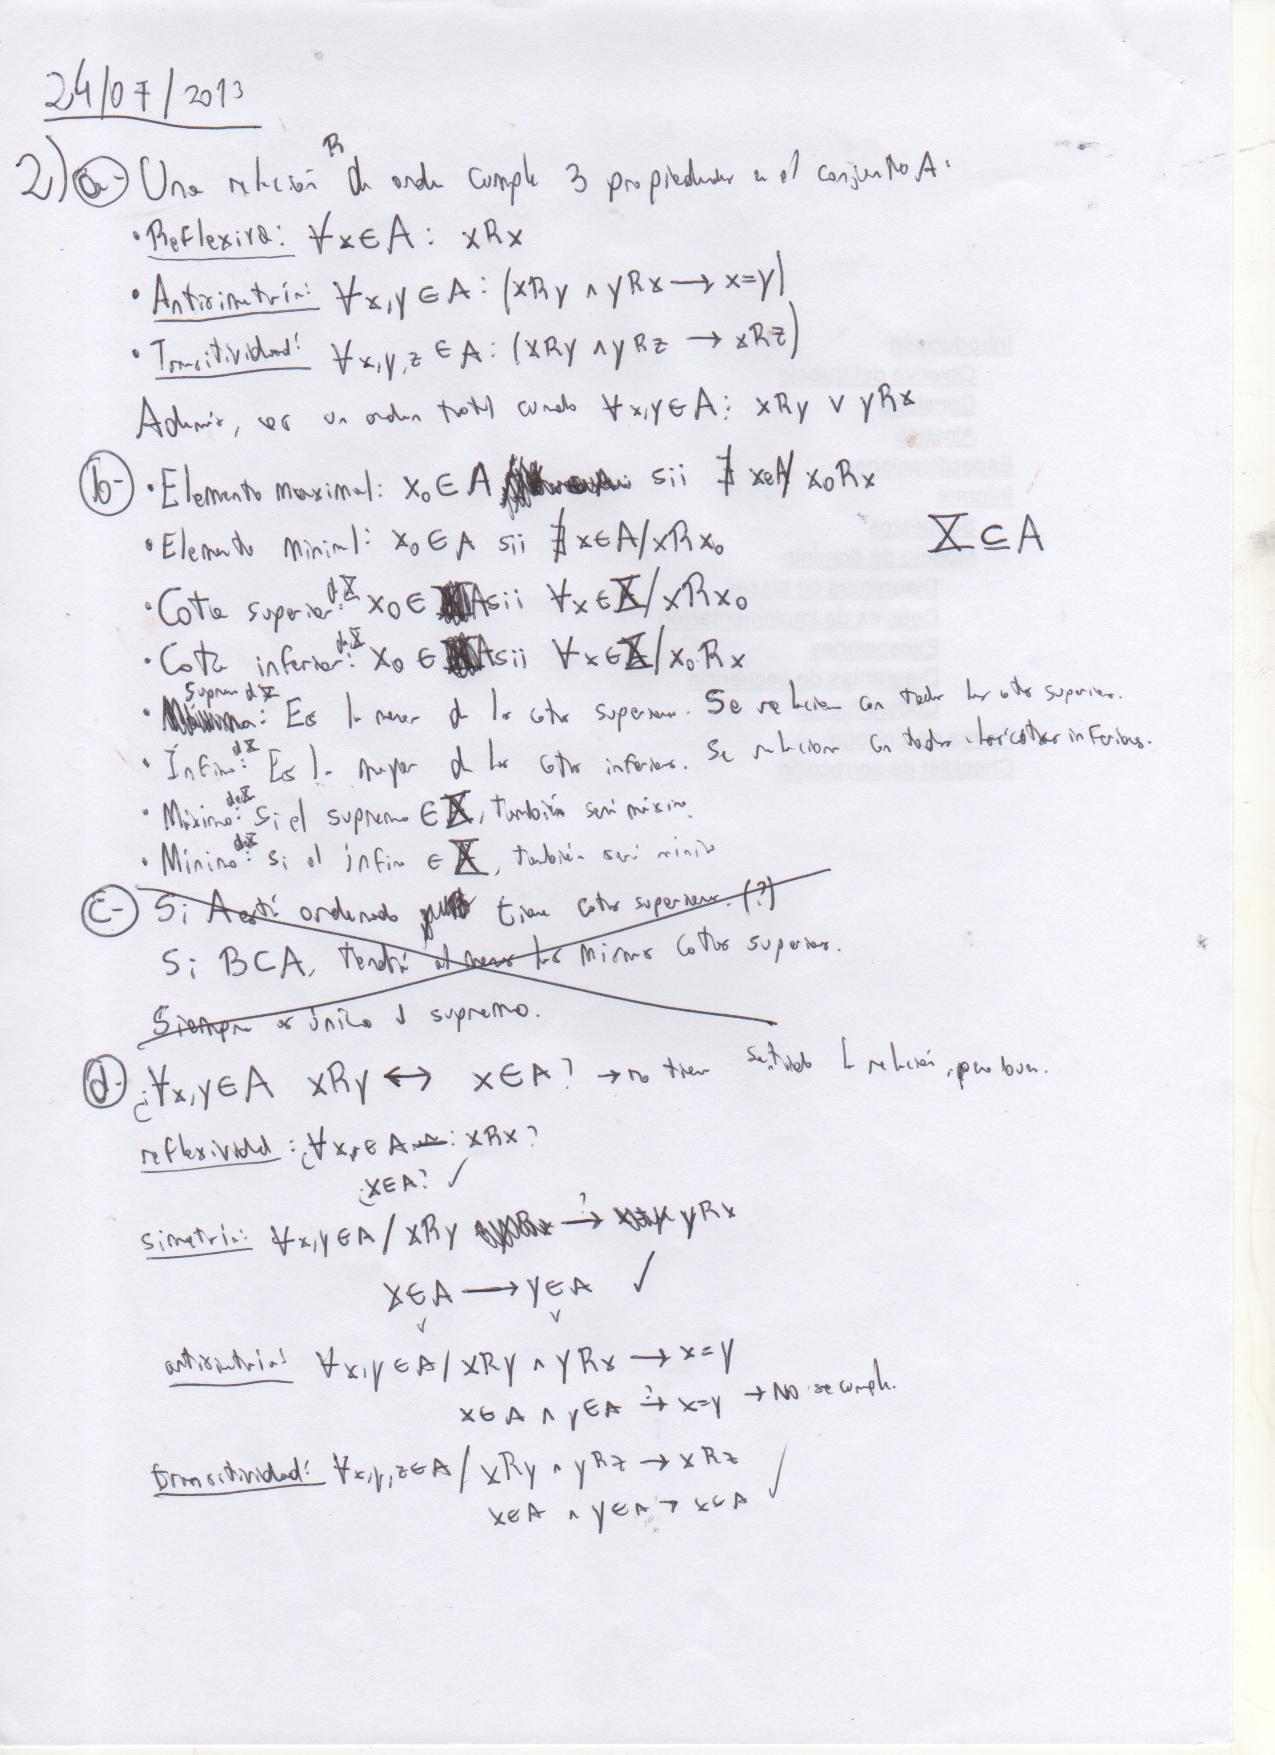 24/07/2013
2) a- Una relación R de orden cumple 3 propiedades en el conjunto A:
• Reflexiva: ∀x∈A: xRx
• Antisimetría: ∀x,y∈A: (xRy ∧ yRx → x=y)
• Transitividad: ∀x,y,z∈A: (xRy ∧ yRz → xRz)
Además, es un orden total cuando ∀x,y∈A: xRy ∨ yRx
b- • Elemento maximal: x₀∈A sii ∄ x∈A/ x₀Rx
• Elemento minimal: x₀∈A sii ∄ x∈A/xRx₀
X⊆A
• Cota superior de X: x₀∈A sii ∀x∈X/xRx₀
• Cota inferior de X: x₀∈A sii ∀x∈X/x₀Rx
• Supremo de X: Es la menor de las cotas superiores. Se relaciona con todas las cotas superiores.
• Ínfimo de X: Es la mayor de las cotas inferiores. Se relaciona con todas las cotas inferiores.
• Máximo de X: Si el supremo ∈ X, también será máximo.
• Mínimo de X: si el ínfimo ∈ X, también será mínimo
c- Si A está ordenado tiene cotas superiores. (?)
Si B⊂A, tendrá al menos las mismas cotas superiores.
Siempre es único el supremo.
d- ¿∀x,y∈A xRy ↔ x∈A? → no tiene sentido la relación, pero bueno.
reflexividad: ¿∀x∈A: xRx?
¿x∈A? ✓
simetría: ∀x,y∈A / xRy →? yRx
x∈A → y∈A ✓
✓ ✓
antisimetría: ∀x,y∈A/ xRy ∧ yRx → x=y
x∈A ∧ y∈A →? x=y → No se cumple.
transitividad: ∀x,y,z∈A/ xRy ∧ yRz → xRz
x∈A ∧ y∈A → x∈A ✓
Introducción
Objetivo del trabajo
Especificaciones
Informe
Modelo de dominio
Diagramas de clases
Detalles de implementación
Excepciones
Diagramas de secuencia
Checklist de corrección